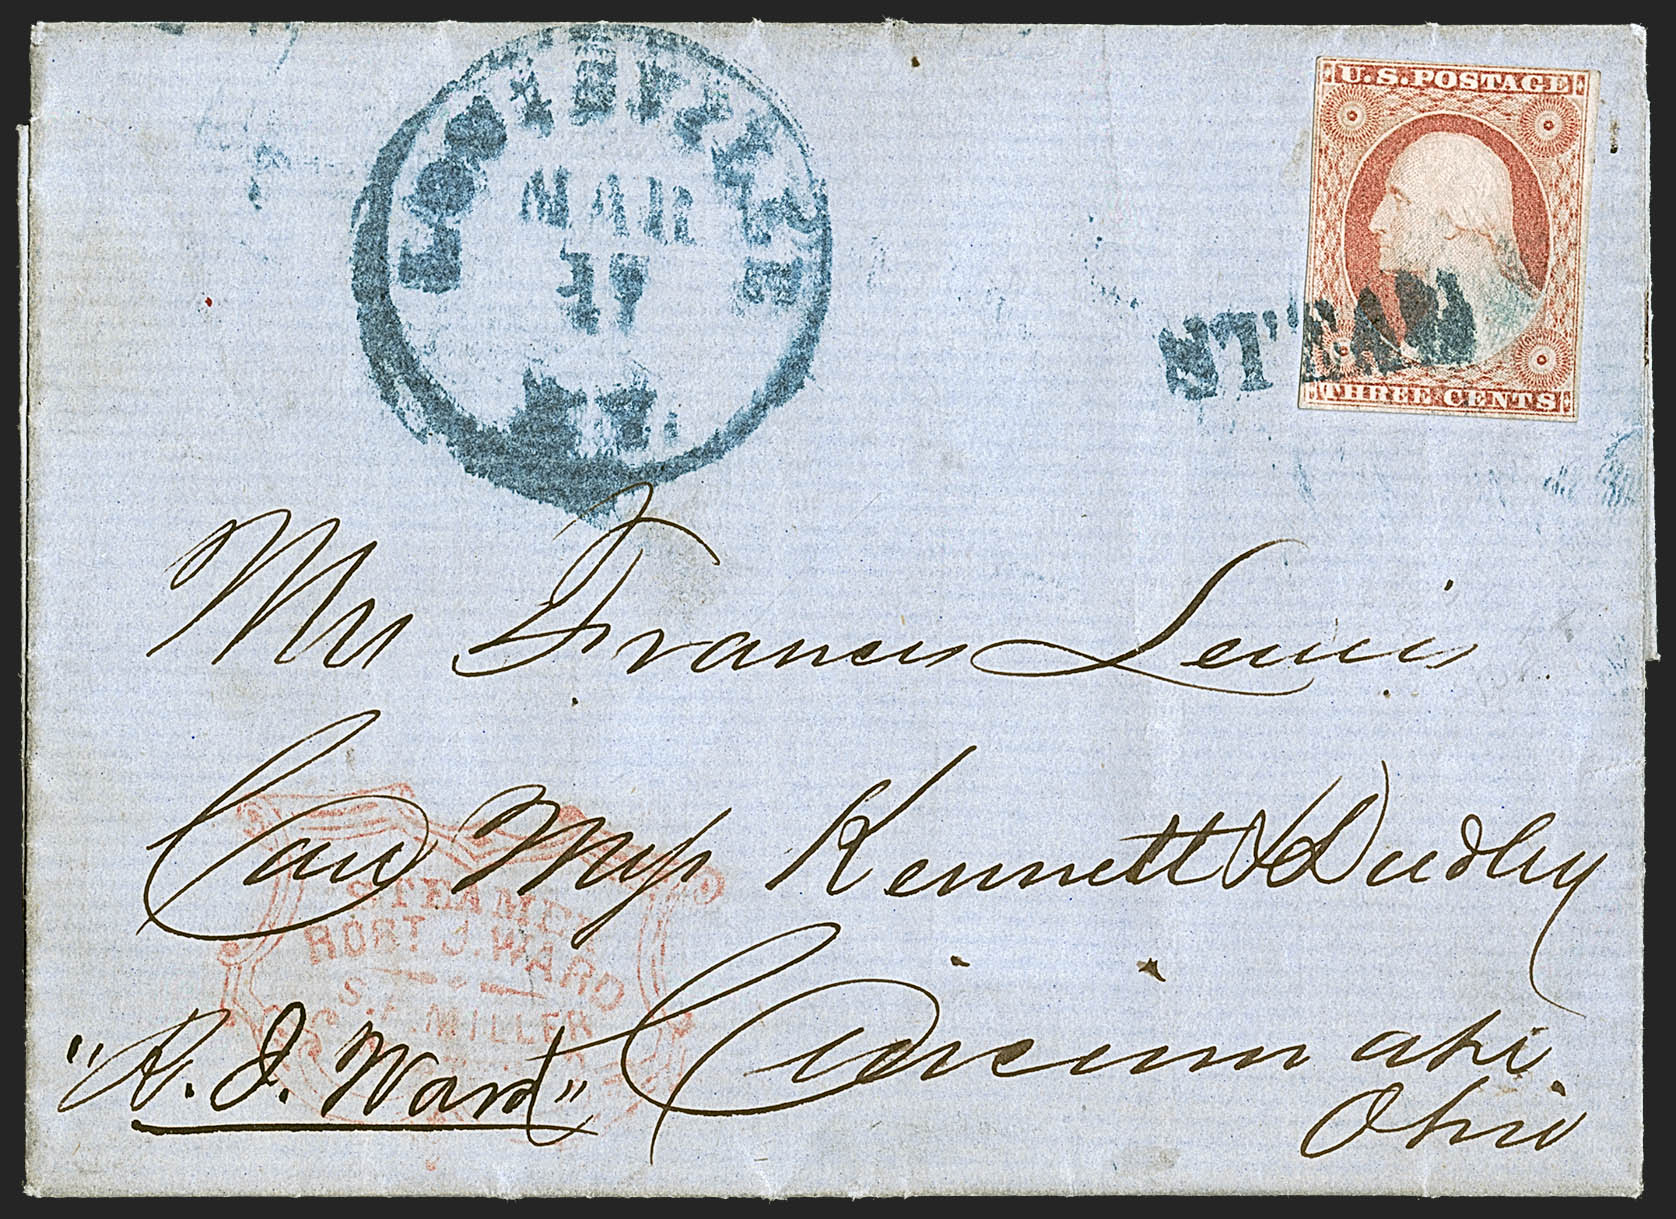 LOUISVILLE
MAR
17
KY.
U.S. POSTAGE
STEAM
THREE CENTS
Mr Francis Lewis
Care Mess Kennett & Dudley
Cincinnati
Ohio
STEAMER
ROBT J. WARD
MILLER
"R. J. Ward"